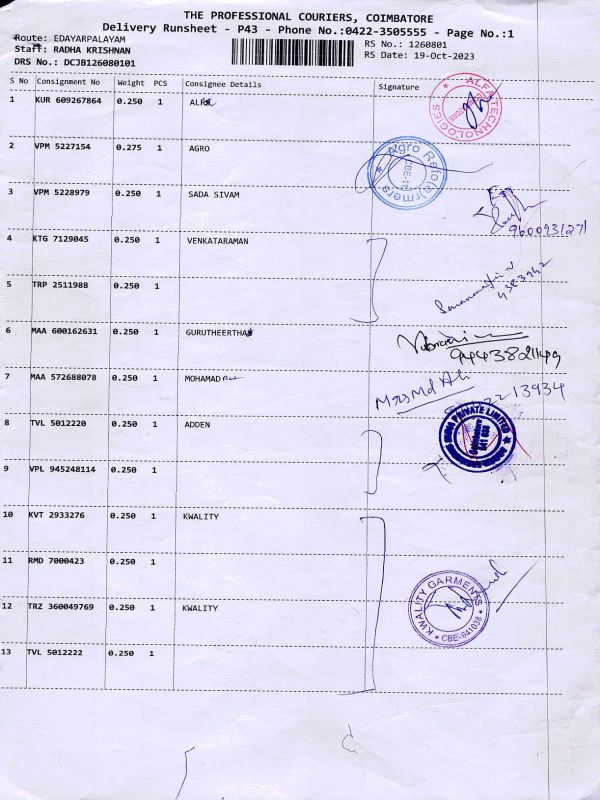 THE PROFESSIONAL COURIERS, COIMBATORE
Delivery Runsheet - P43 - Phone No.:0422-3505555 - Page No.:1
Route: EDAYARPALAYAM
Staff: RADHA KRISHNAN
DRS No.: DCJB126080101
RS No.: 1260801
RS Date: 19-Oct-2023
S No Consignment No Weight PCS Consignee Details Signature
1 KUR 609267864 0.250 1
ALFA TECHNOLOGIES
2 VPM 5227154 0.275 1 AGRO
Agro Reformers
3 VPM 5228979 0.250 1 SADA SIVAM
9600931271
4 KTG 7129045 0.250 1 VENKATARAMAN
5 TRP 2511988 0.250 1
6 MAA 600162631 0.250 1 GURUTHEERTHA
9443821149
7 MAA 572688078 0.250 1 MOHAMAD
Md Ali
13934
8 TVL 5012220 0.250 1 ADDEN
INDIA PRIVATE LIMITED
9 VPL 945248114 0.250 1
10 KVT 2933276 0.250 1 KWALITY
11 RMD 7000423 0.250 1
KWALITY GARMENTS
* CBE-641038 *
12 TRZ 360049769 0.250 1 KWALITY
13 TVL 5012222 0.250 1